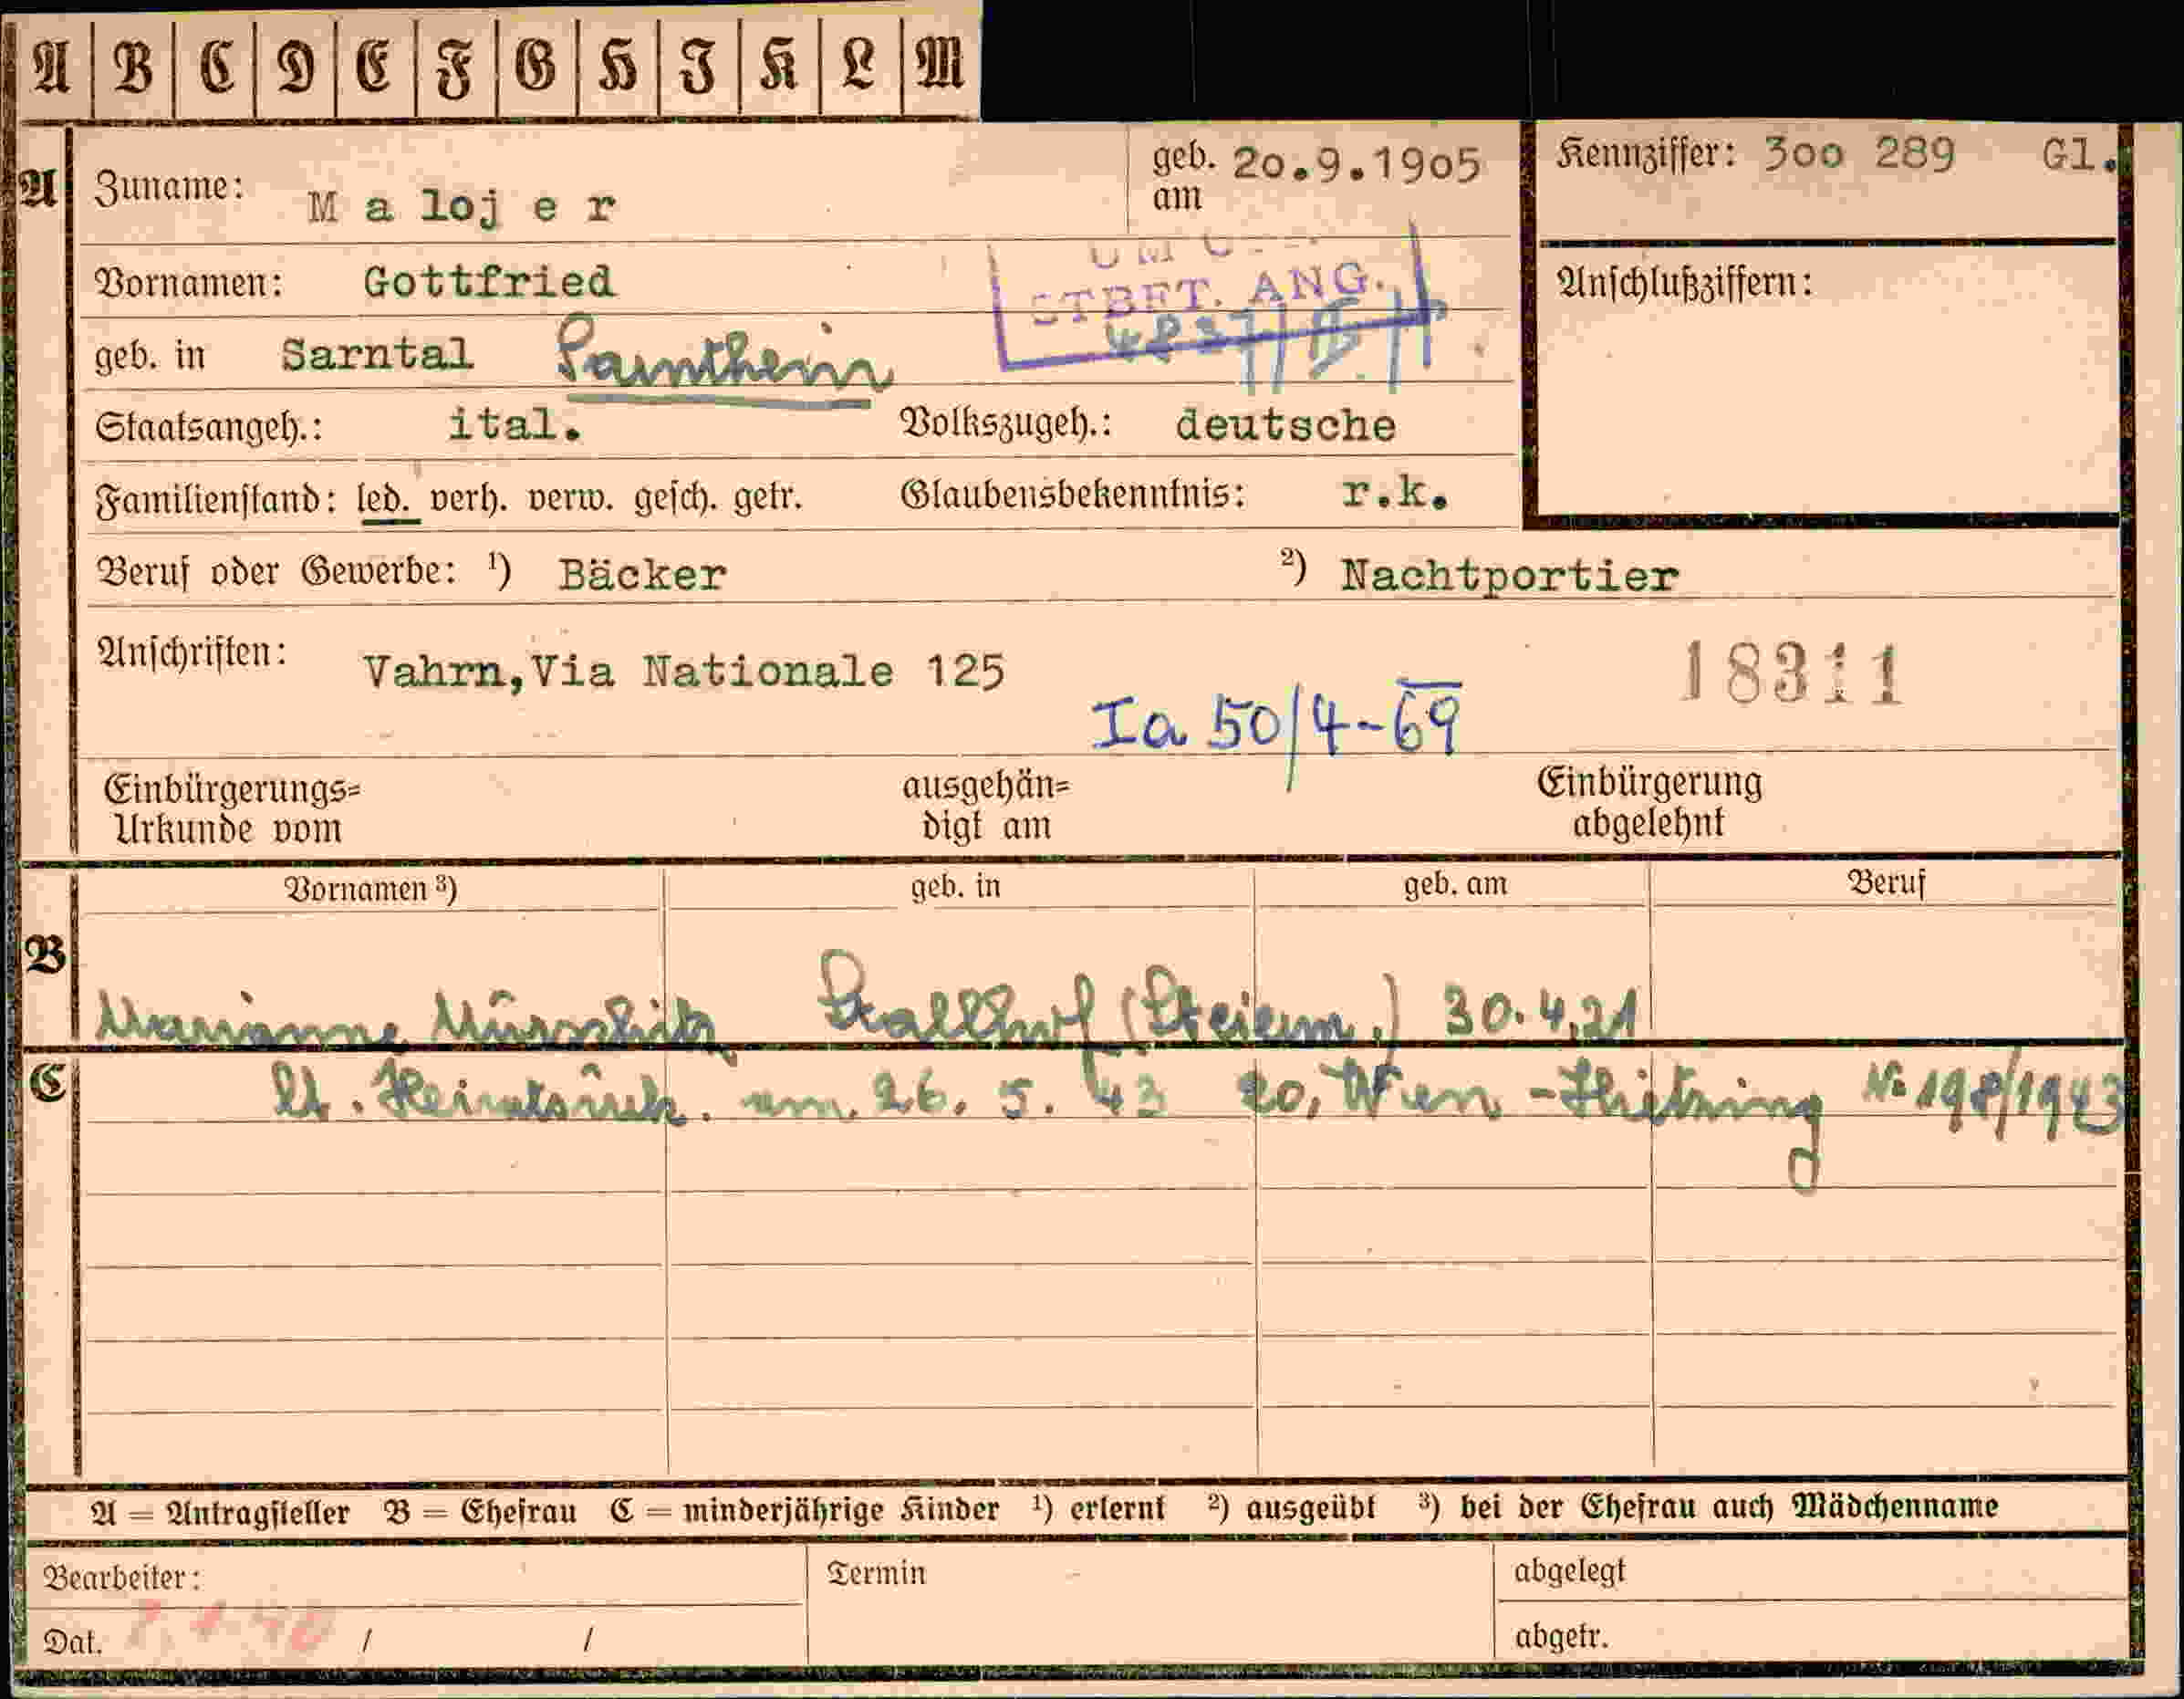 A B C D E F G H I K L M
A Zuname: M a loj e r geb. am 20.9.1905 Kennziffer: 300 289 Gl.
Vornamen: Gottfried
STBET. ANG.
Anschlußziffern:
geb. in Sarntal Sarnthein
Staatsangeh.: ital. Volkszugeh.: deutsche
Familienstand: led. verh. verw. gesch. getr. Glaubensbekenntnis: r.k.
Beruf oder Gewerbe: ¹) Bäcker ²) Nachtportier
Anschriften: Vahrn,Via Nationale 125 18311
Ia 50/4-69
Einbürgerungs= ausgehän= Einbürgerung
Urkunde vom digt am abgelehnt
Vornamen ³) geb. in geb. am Beruf
B
Marianne Stallhof (Steierm.) 30.4.21
C lt. am 26. 5. 43 20, Wien - Hietzing No 198/1943
A = Antragsteller B = Ehefrau C = minderjährige Kinder ¹) erlernt ²) ausgeübt ³) bei der Ehefrau auch Mädchenname
Bearbeiter: Termin abgelegt
Dat. / / abgetr.